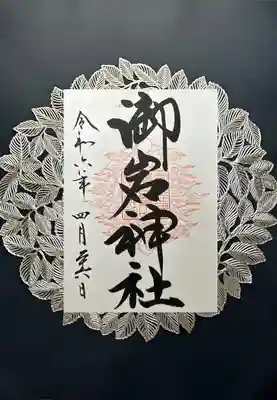 御岩神社
令和六年 四月廿六日